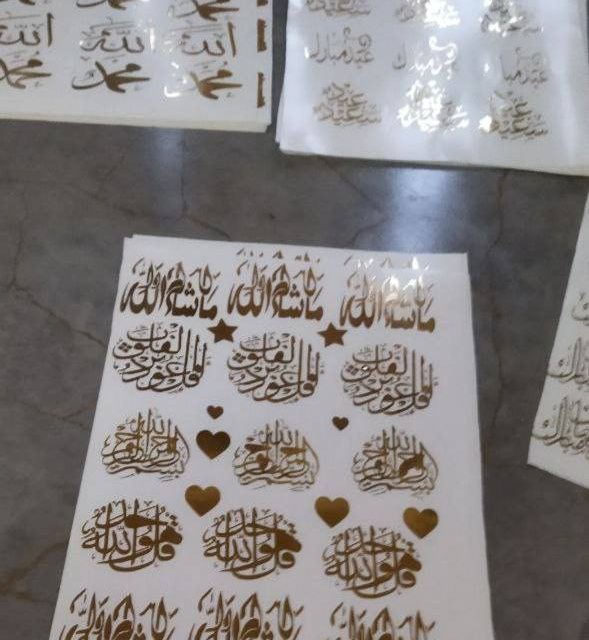 محمد محمد
الله الله الله
محمد محمد محمد
عيد مبارك عيد مبارك عيد مبارك
عيد سعيد عيد سعيد عيد سعيد
ما شاء الله ما شاء الله ما شاء الله
قل أعوذ برب الفلق قل أعوذ برب الفلق قل أعوذ برب الفلق
بسم الله الرحمن الرحيم بسم الله الرحمن الرحيم بسم الله الرحمن الرحيم
قل هو الله أحد قل هو الله أحد قل هو الله أحد
ما شاء الله ما شاء الله ما شاء الله
مبارك
مبارك